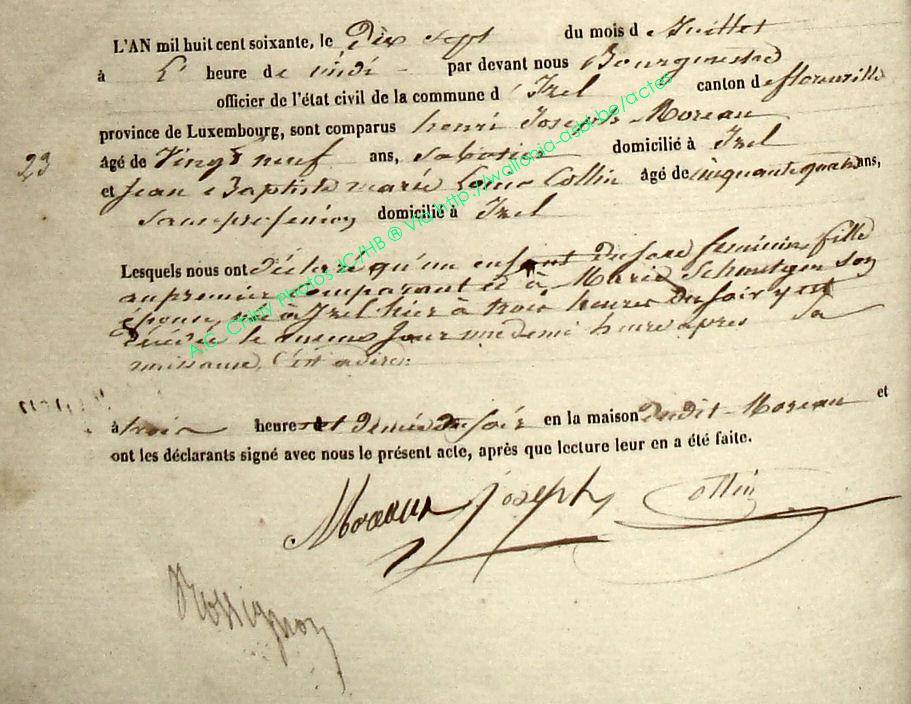 L'AN mil huit cent soixante, le Dix sept du mois d e Juillet
à L' heure d e midi par devant nous Bourgmestre
officier de l'état civil de la commune d' Izel canton de florenville
province de Luxembourg, sont comparus henri Joseph Moreau
23
âgé de Vingt neuf ans, Sabotier domicilié à Izel
et Jean Baptiste marie Louis Collin âgé de cinquante quatre ans,
Sans profession domicilié à Izel
Lesquels nous ont déclaré qu'un enfant du sexe féminin fille
au premier comparant et à Marie Schmitgen son
épouse, né à Izel hier à trois heures du soir y est
décédée le meme jour une demi heure apres Sa
naissance, C'est adire:
à trois heures et demie du soir en la maison dudit Moreau et
ont les déclarants signé avec nous le présent acte, après que lecture leur en a été faite.
Moreaux Joseph Collin
Rossignon
A.C. Chiny Photos JC/HB ® Via http://wallonia-asbl.be/actes